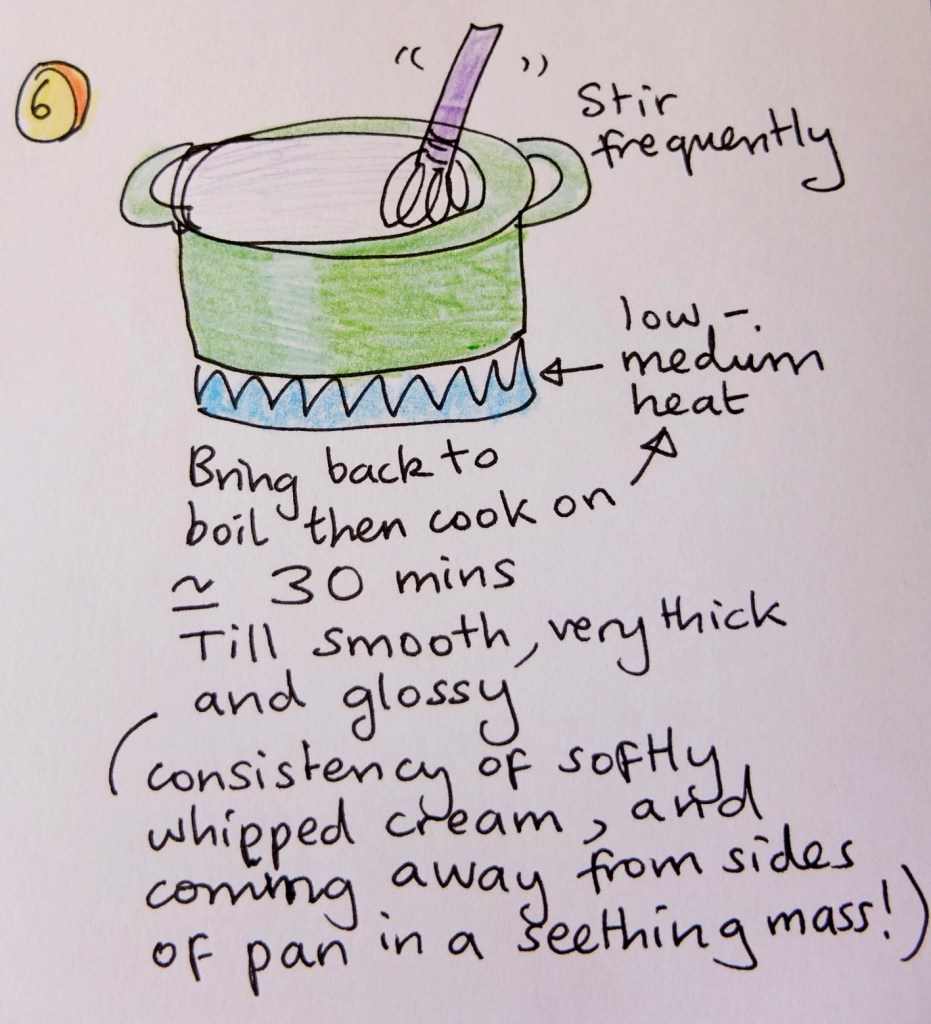 6
Stir
frequently
low -
medium
heat
Bring back to
boil then cook on
≃ 30 mins
Till smooth, very thick
and glossy
(consistency of softly
whipped cream, and
coming away from sides
of pan in a seething mass!)